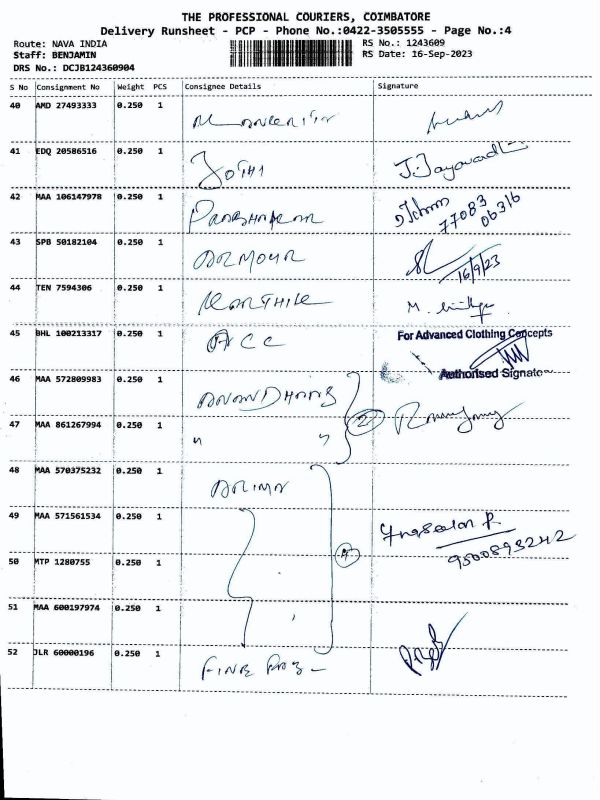 THE PROFESSIONAL COURIERS, COIMBATORE
Delivery Runsheet - PCP - Phone No.:0422-3505555 - Page No.:4
Route: NAVA INDIA RS No.: 1243609
Staff: BENJAMIN RS Date: 16-Sep-2023
DRS No.: DCJB124360904
S No Consignment No Weight PCS Consignee Details Signature
40 AMD 27493333 0.250 1
41 EDQ 20586516 0.250 1 JOTHI
42 MAA 106147978 0.250 1 PRABHAKAR 77083
06316
43 SPB 50182104 0.250 1 ARMOUR 16/9/23
44 TEN 7594306 0.250 1 KARTHIK M.
45 BHL 100213317 0.250 1 ACC For Advanced Clothing Concepts
Authorised Signato
46 MAA 572809983 0.250 1
47 MAA 861267994 0.250 1 " " 2
48 MAA 570375232 0.250 1
49 MAA 571561534 0.250 1
50 MTP 1280755 0.250 1 4 9500893242
51 MAA 600197974 0.250 1
52 JLR 60000196 0.250 1 FINE FAB